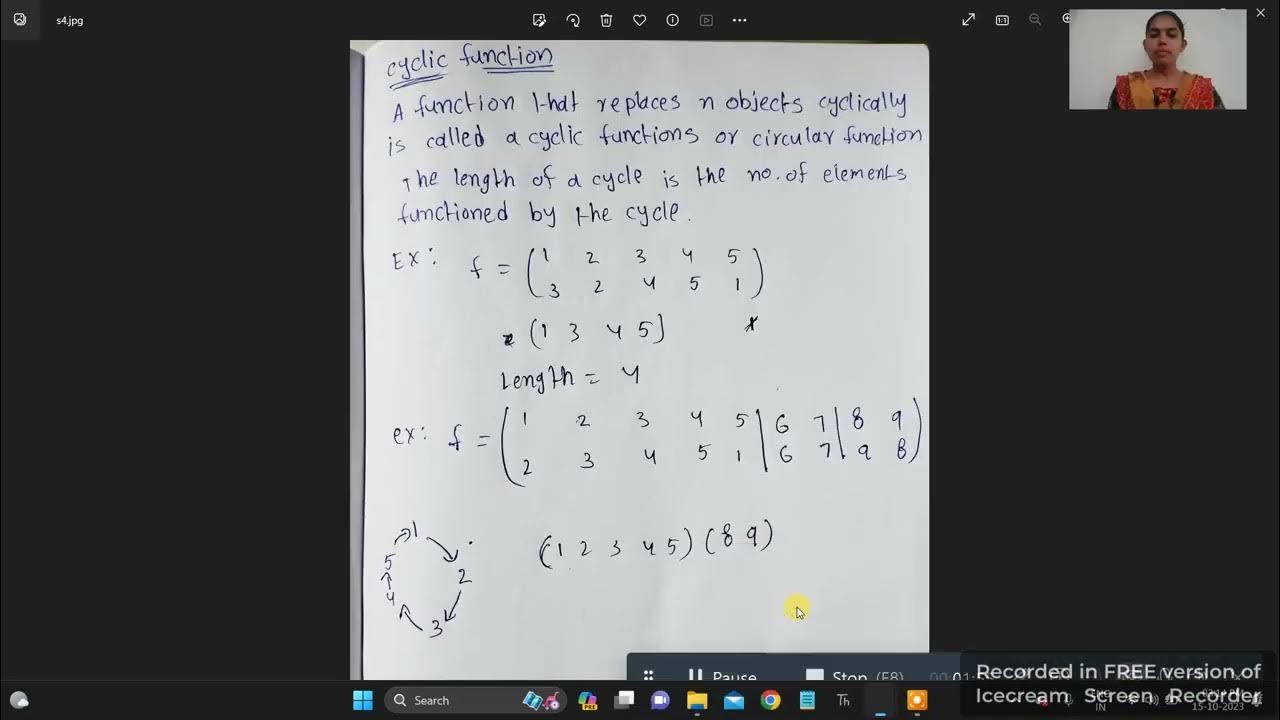 s4.jpg
cyclic function
A function that replaces n objects cyclically
is called a cyclic functions or circular function
The length of a cycle is the no. of elements
functioned by the cycle.
Ex: f = ( 1 2 3 4 5
3 2 4 5 1 )
(1 3 4 5)
Length = 4
ex: f = ( 1 2 3 4 5 | 6 7 | 8 9
2 3 4 5 1 | 6 7 | 9 8 )
(1 2 3 4 5) (8 9)
1
5
2
4
3
Pause
Stop (F8)
Recorded in FREE version of
Icecream Screen Recorder
Search
PRE
Th
IN
15-10-2023